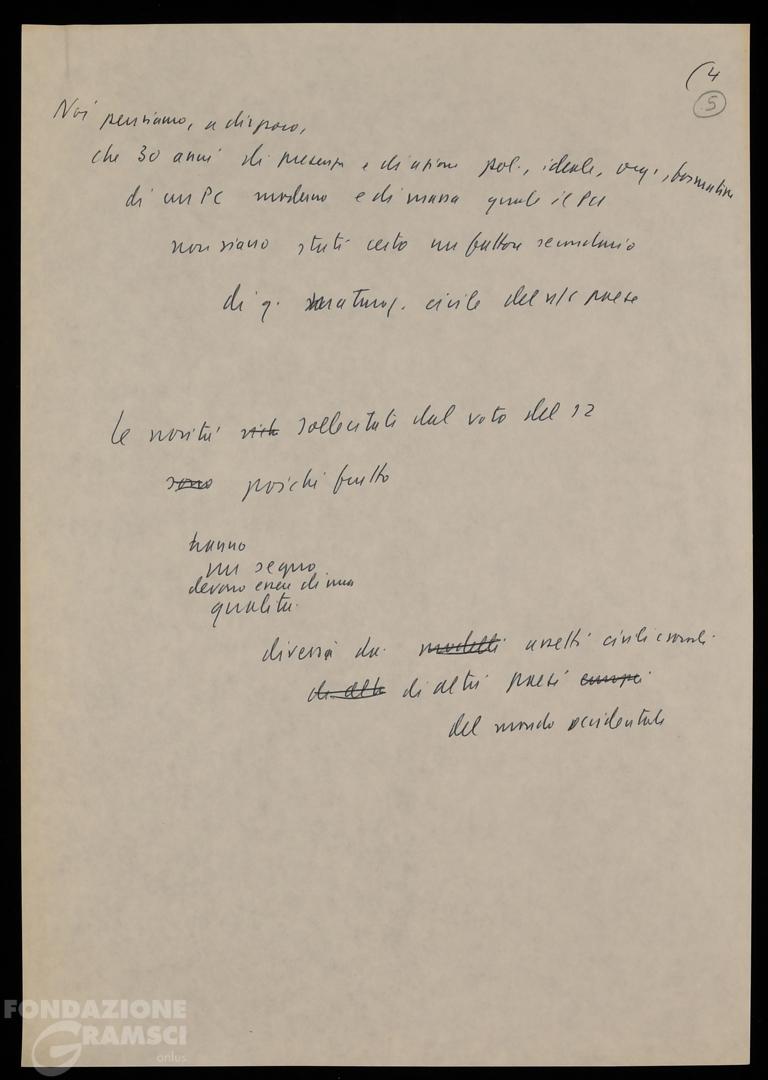 (4
5
Noi pensiamo, a disparo,
che 30 anni di presenza e di azione pol., ideale, org., formativa
di un PC moderno e di massa quale il PCI
non siano stati certo un fattore secondario
di q. maturaz. civile del n/s paese
Le novità sollecitate dal voto del 12
sono poiché frutto
hanno
un segno
devono essere di una
qualità
diversa da modelli assetti civili e morali
di altri di altri paesi europei
del mondo occidentale
FONDAZIONE
GRAMSCI
onlus